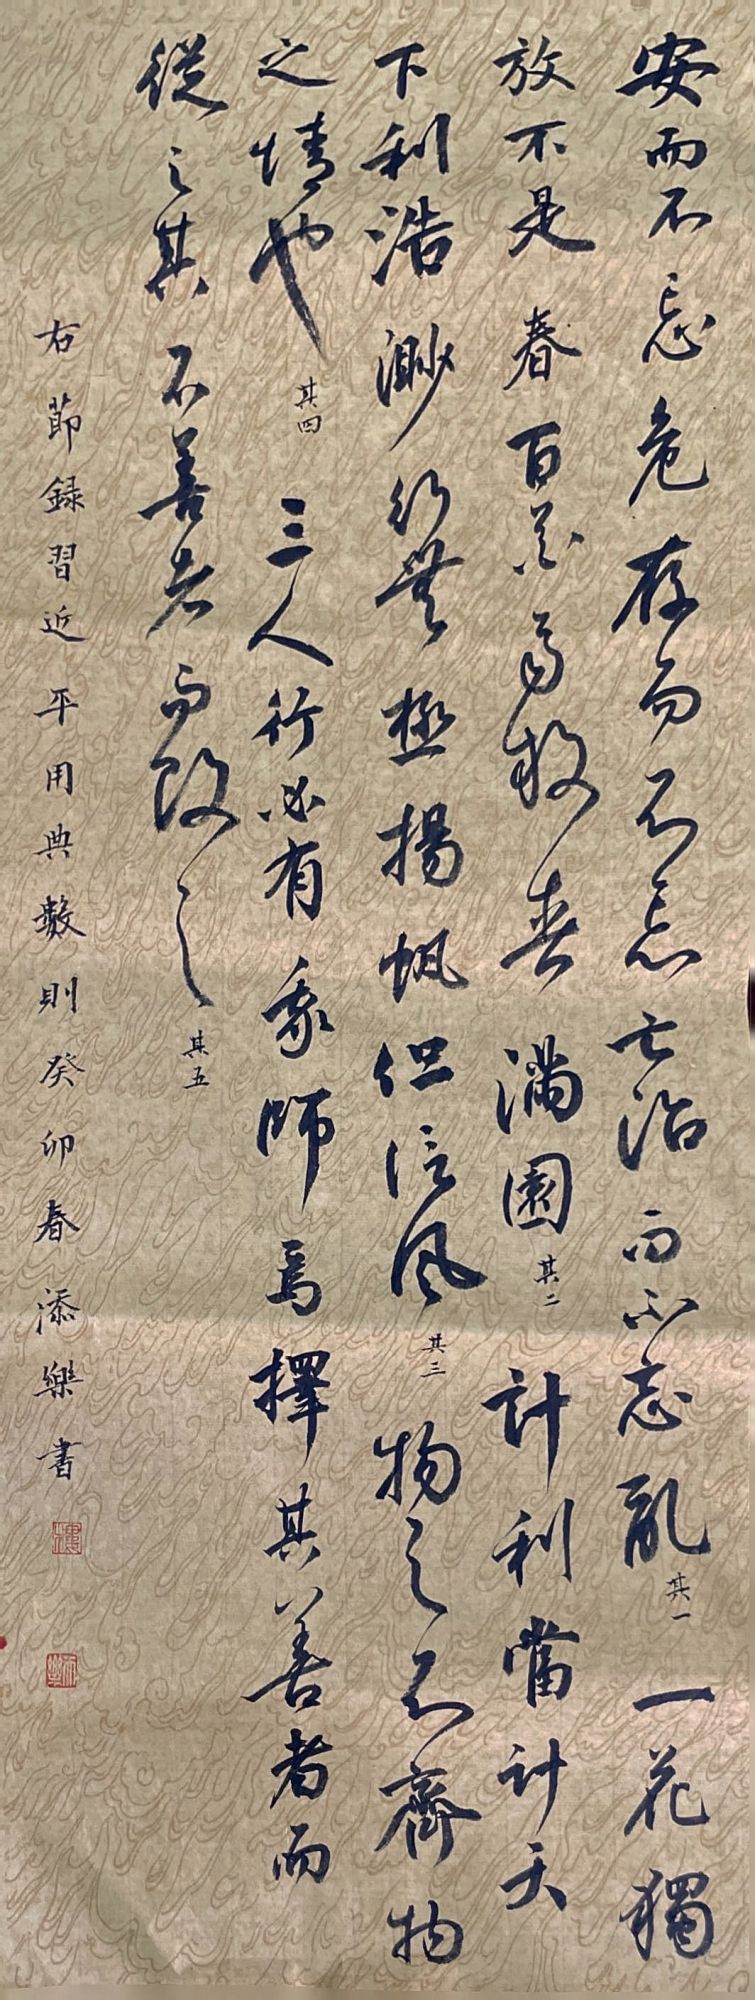 安而不忘危存而不忘亡治而不忘亂其一一花獨
放不是春百花齊放春滿園其二計利當計天
下利浩渺行無極揚帆但信風其三物之不齊物
之情也其四三人行必有我師焉擇其善者而
從之其不善者而改之其五
右節錄習近平用典數則癸卯春添樂書